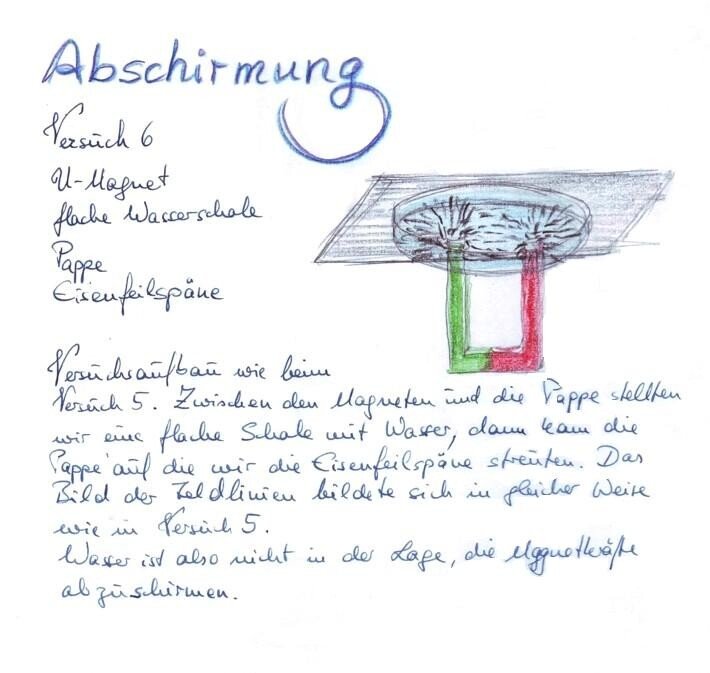 Abschirmung
Versuch 6
U-Magnet
flache Wasserschale
Pappe
Eisenfeilspäne
Versuchsaufbau wie beim
Versuch 5. Zwischen den Magneten und die Pappe stellten
wir eine flache Schale mit Wasser, dann kam die
Pappe auf die wir die Eisenfeilspäne streuten. Das
Bild der Feldlinien bildete sich in gleicher Weise
wie in Versuch 5.
Wasser ist also nicht in der Lage, die Magnetkräfte
abzuschirmen.